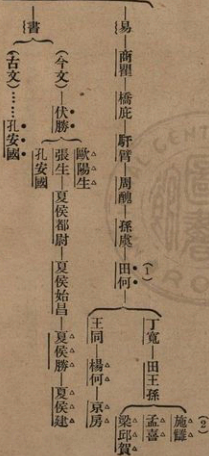 易—商瞿—橋庇—馯臂—周醜—孫虞—田何
(1)
丁寬—田王孫
施讎
孟喜
梁邱賀
(2)
王同—楊何—京房
書
(今文)—伏勝
歐陽生
張生—夏侯都尉—夏侯始昌—夏侯勝—夏侯建
孔安國
(古文)……孔安國